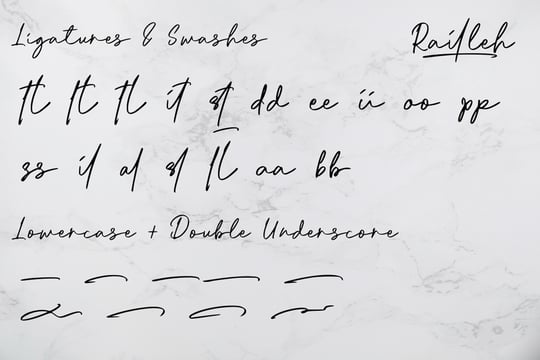 Ligatures & Swashes
Railleh
tt ft tl it st dd ee ii oo pp
ss il al sl fl aa bb
Lowercase + Double Underscore